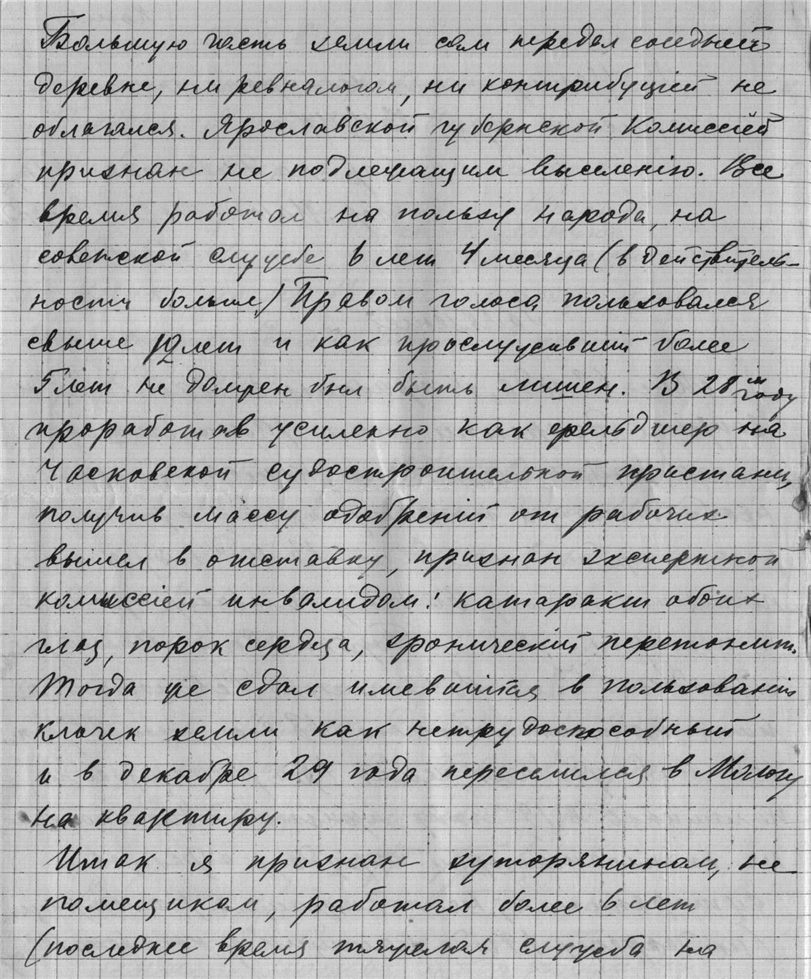 Большую часть земли сам передал соседней
деревне, ни ревналогом, ни контрибуціей не
облагался. Ярославской губернской Комиссіей
признан не подлежащим выселенію. Все
время работал на пользу народа, на
советской службе 6 лет 4 месяца (в действитель-
ности больше) Правом голоса пользовался
свыше 12 лет и как прослуживший более
5 лет не должен был быть лишен. В 28 м году
проработав усиленно как фельдшер на
Часковской судостроительной пристани,
получив массу одобреній от рабочих
вышел в отставку, признан экспертной
комиссіей инвалидом: катаракт обоих
глаз, порок сердца, хроническій перетонит.
Тогда же сдал имевшійся в пользованіи
клочек земли как нетрудоспособный
и в декабре 29 года переселился в Мологу
на квартиру.
Итак я признан хуторянином, не
помещиком, работал более 6 лет
(последнее время тяжелая служба на